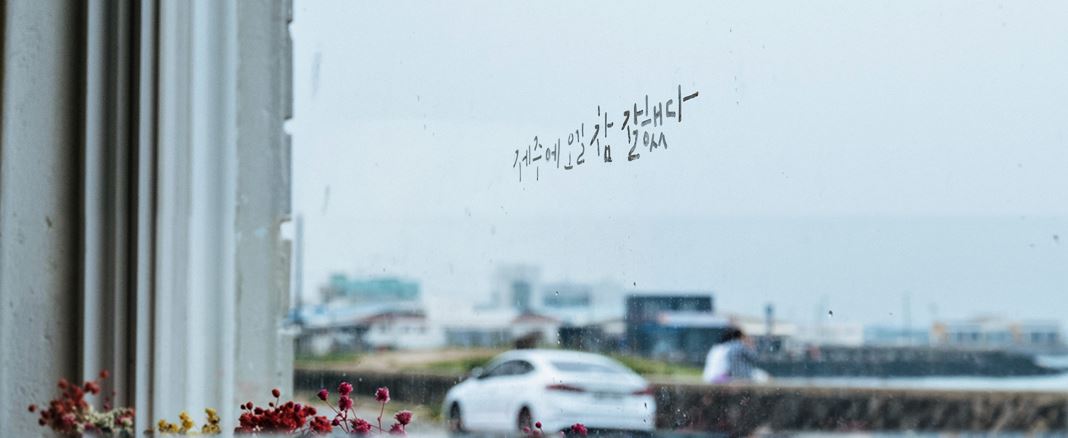 제주에 오길 참 잘했다